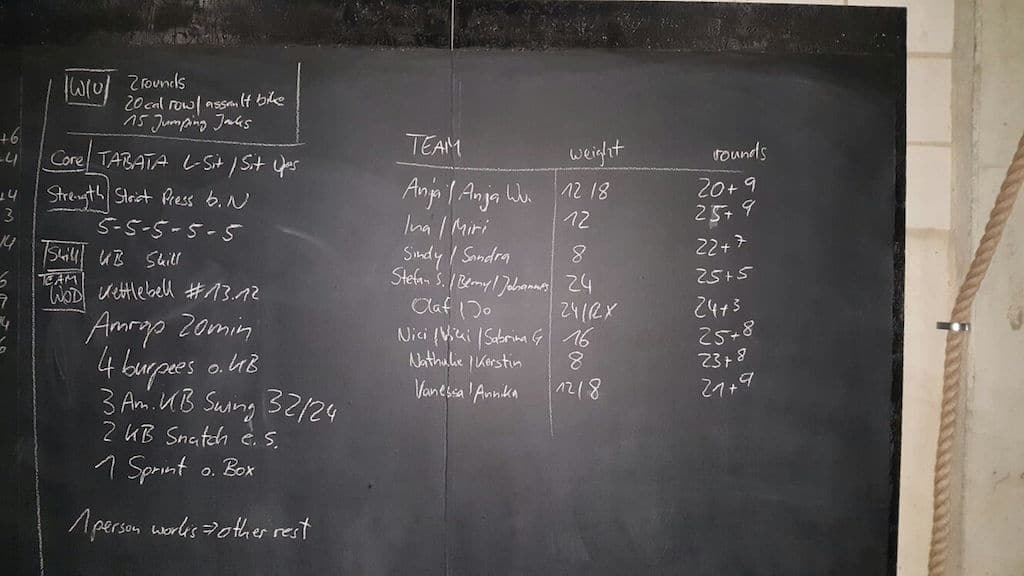 W/U 2 rounds
20 cal row / assault bike
15 Jumping Jacks
Core TABATA L-Sit / Sit ups
Strength Strict Press b.N
5-5-5-5-5
Skill KB Skill
TEAM WOD Kettlebell #13.12
Amrap 20min
4 burpees o. KB
3 Am. KB Swing 32/24
2 KB Snatch e.s.
1 Sprint o. Box
1 person works => other rest
+6
+4
3
TEAM weight rounds
Anja / Anja Wu 12/8 20+9
Ina / Miri 12 25+9
Sindy / Sandra 8 22+7
Stefan S. / Benny / Johannes 24 25+5
Olaf / Do 24/RX 24+3
Nici / Vicki / Sabrina G 16 25+8
Nathalie / Kerstin 8 23+8
Vanessa / Annika 12/8 21+9